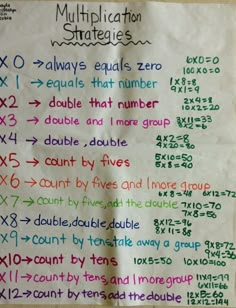 Multiplication
Strategies
X 0 → always equals zero 6x0=0
100x0=0
X 1 → equals that number 1x8=8
9x1=9
X2 → double that number 2x4=8
10x2=20
X3 → double and 1 more group 3x11=33
3x2=6
X4 → double, double 4x2=8
4x20=80
X5 → count by fives 5x10=50
5x8=40
X6 → count by fives and 1 more group
6x8=48 6x12=72
X7 → count by fives, add the double 7x10=70
7x8=56
X8 → double, double, double 8x12=96
8x11=88
X9 → count by tens, take away a group 9x8=72
9x4=36
X10 → count by tens 10x5=50 10x10=100
X11 → count by tens, and 1 more group 11x9=99
6x11=66
X12 → count by tens add the double 12x5=60
12x12=144